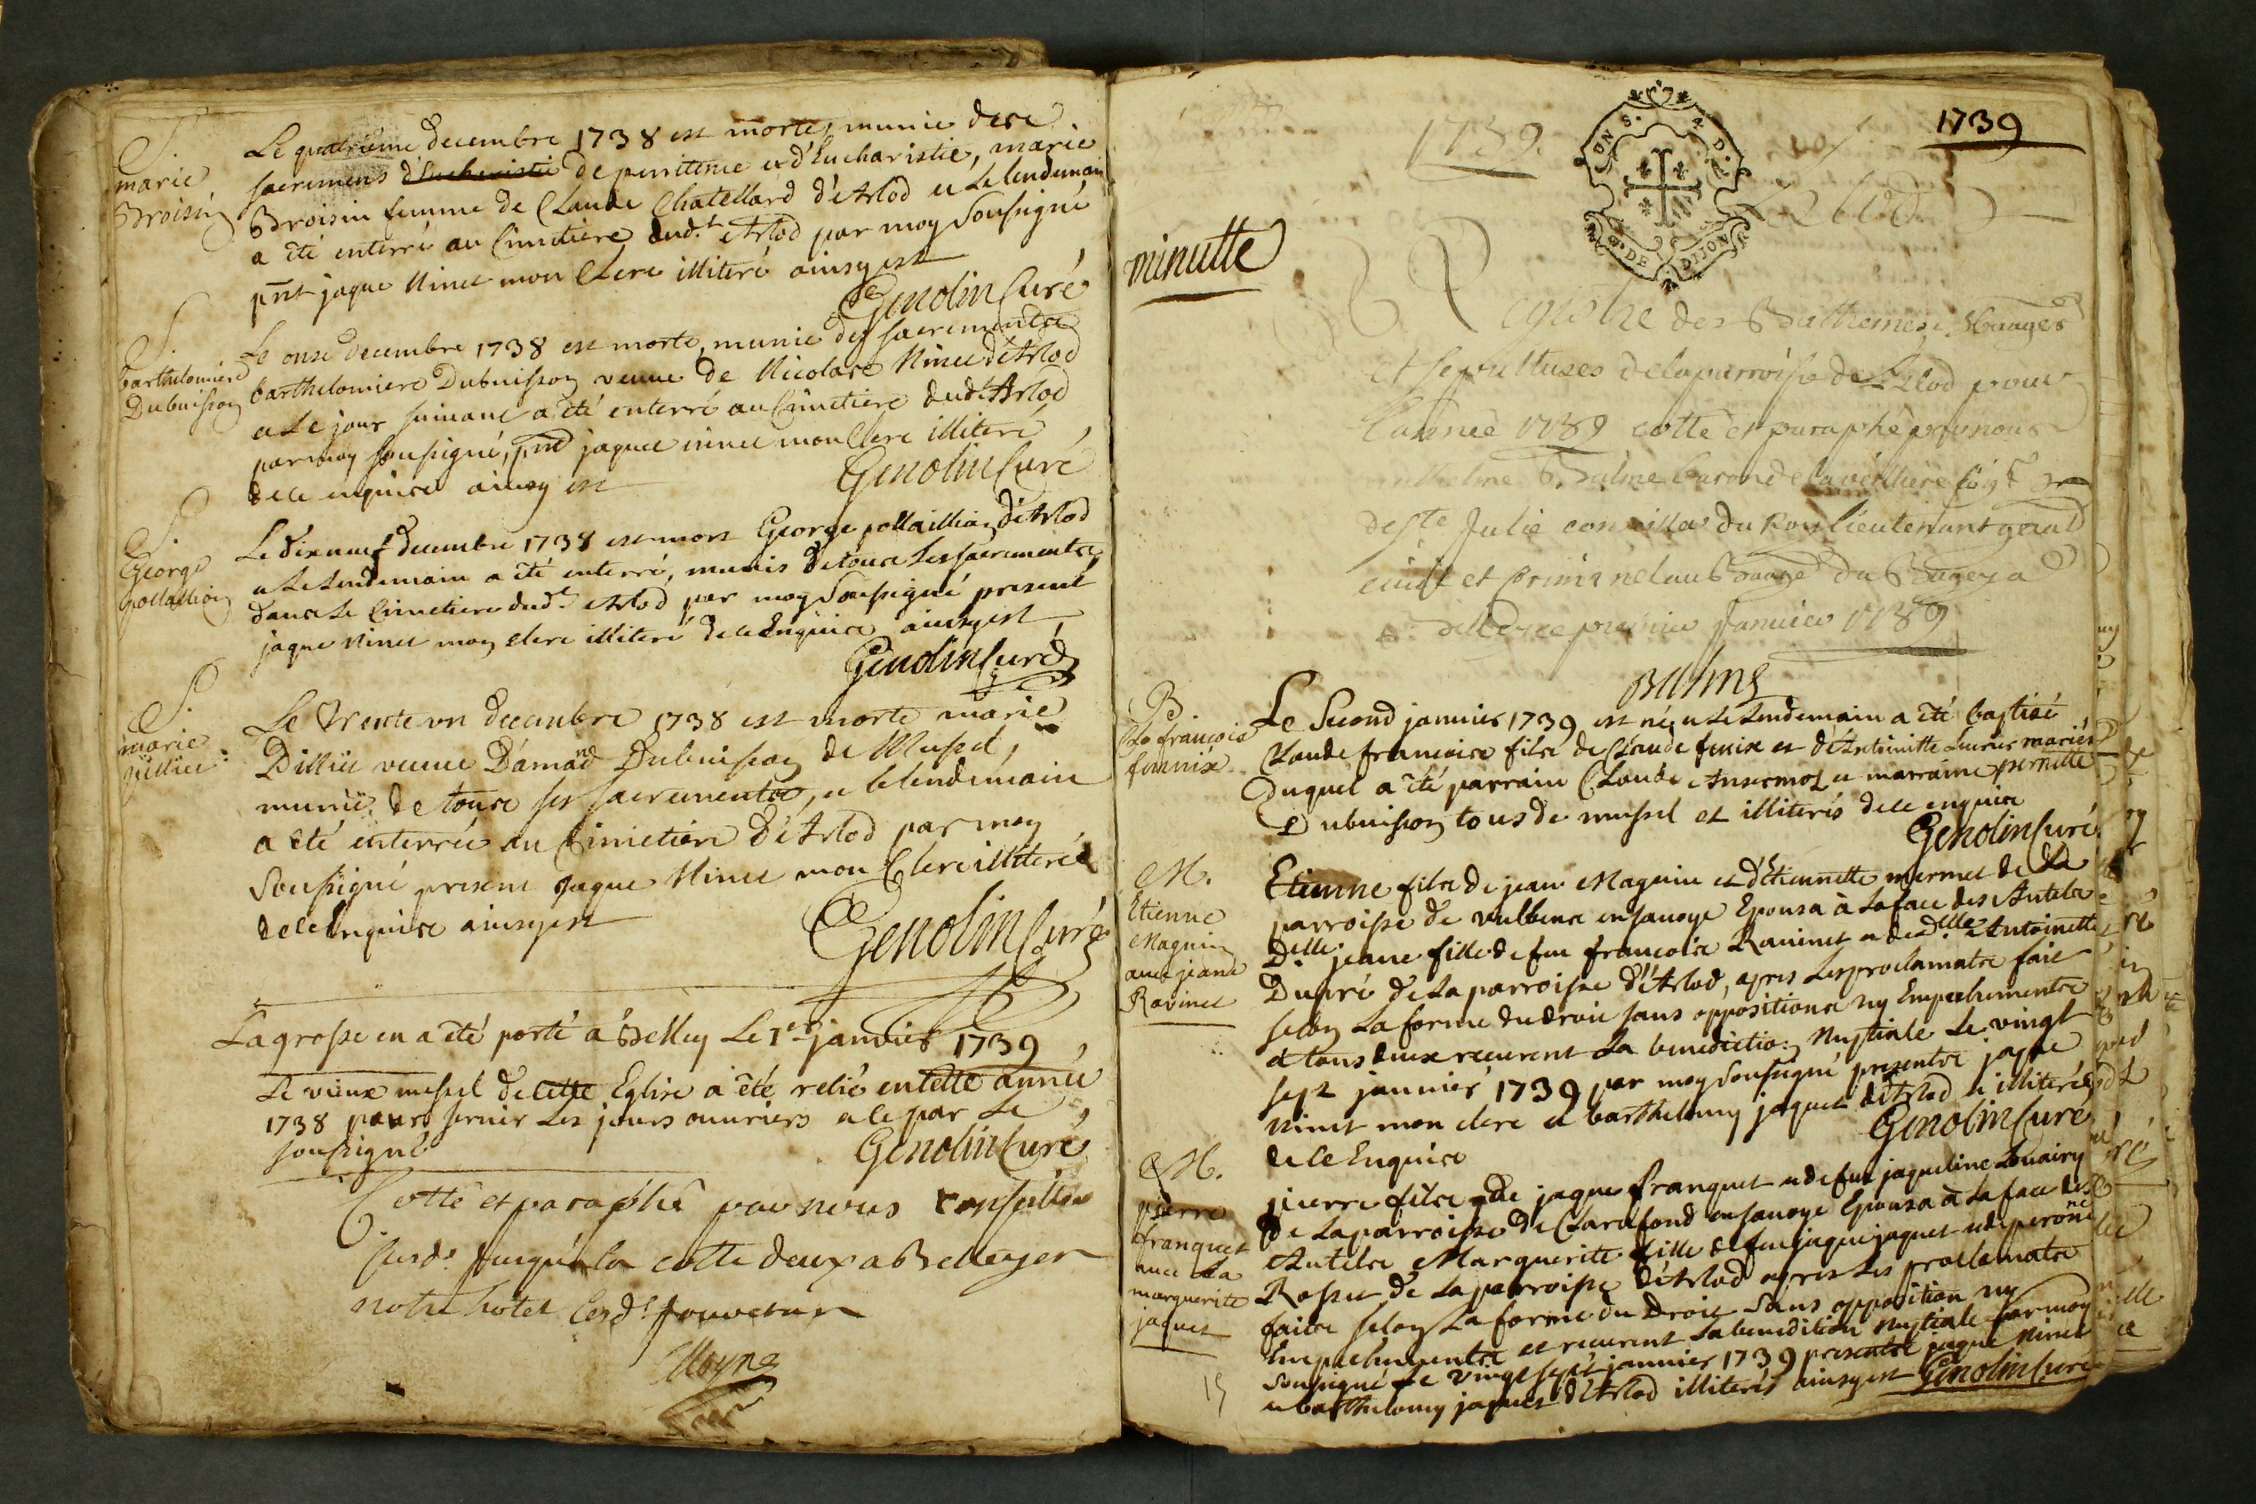 S.
marie
Broisin
Le quatrieme decembre 1738 est morte, munie de ses
sacremens d'Eucharistie de penittence et d'Eucharistie, marie
Broisin femme de Claude Chatellard d'Arlod et le lendemain
a été enterré au Cimetiere dud.t Arlod par moy Soussigné
pnt jaque Ninet mon Clerc illiteré ainsy est
Genolin Curé
S.
barthelomiere
Dubuisson
Le onse decembre 1738 est morte, munie des sacrements
barthelomiere Dubuisson veuve de Nicolas Ninet d'Arlod
et le jour suivant a été enterré au Cimetiere dudt Arlod
par moy soussigné, pnt jaques ninet mon Clerc illiteré
de ce enquis ainsy est
Genolin Curé
S.
George
pollaillion
Le dix neuf decembre 1738 est mort George pollaillion d'Arlod
et le lendemain a été enterré, munis de tous les sacrements
dans le Cimetiere dud.t Arlod par moy Soussigné present
jaque Ninet mon clerc illiteré de ce Enquis ainsy est
Genolin Curé
S.
marie
Le trente un decembre 1738 est morte marie
veuve D'amad Dubuisson de Mussel,
munie de tous ses sacrements, et le lendemain
a été enterrée au Cimetiere d'Arlod par moy
Soussigné present jaque Ninet mon Clerc illiteré
de ce Enquis ainsy est
Genolin Curé
La grosse en a été porté à Belley Le 1er janvier 1739
Le vieux messel de cette Eglise a été relié en cette année
1738 pour servir les jours ouvriers et ce par Le
soussigné
Genolin Curé
Cotté et paraphé par nous
jusqu'à la cotte deux a Belley en
notre hotel
1739
1739
A.D.
ONS.
G. DE DIJON
Arlod
minutte
Registre des Bathemes, Mariages
et sepultures de la parroisse de Arlod pour
l'année 1739 cotté et paraphé par nous
Balme baron de
de ste Julie conseiller du Roy lieutenant genal
civil et Criminel au Bailliage du Bugey a
Belley ce premier Janvier 1739
Balme
B
Cl. francois
fennix
Le Second janvier 1739 est né et le lendemain a été baptisé
Claude francois fils de Claude fenix et d'Antoinette mariés
Duquel a été parrain Claude Ansermoz et marraine pernette
Dubuisson tous de mussel et illiterés de ce enquis
Genolin Curé
M.
Etienne
Magnin
avec jeane
Ravinet
Etienne fils de jean Magnin et d'Etiennette mermet de La
parroisse de vulbens en savoye Epousa à la face des Autels
Delle jeane fille de feu francois Ravinet et de delle Antoinette
Dupré de la parroisse d'Arlod, apres Les proclamats fait
selon La forme du droit sans oppositions ny Empechements
et tous deux recurent La benediction Nuptiale Le vingt
sept janvier 1739 par moy Soussigné presents jaque
Ninet mon clerc et barthelemy jaquet d'Arlod illiterés
de ce Enquis
Genolin Curé
M.
pierre
franquet
avec La
marguerite
jaquet
pierre fils de jaque franquet et de feu jaqueline
de La parroisse de Clarafond en savoye Epousa à la face des
Autels Marguerite fille de feu jaque jaquet et de perone
Rosset de La parroisse d'Arlod apres Les proclamats
faits selon La forme du Droit Sans opposition ny
Empechements et recurent La benediction Nuptiale par moy
Soussigné Le vingt sept janvier 1739 presents jaque Ninet
et barthelemy jaquet d'Arlod illiterés ainsy est Genolin Curé